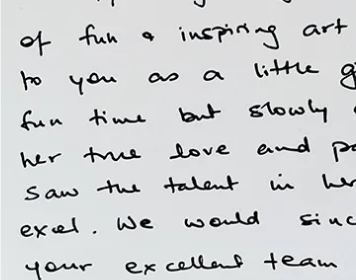 of fun & inspiring art
to you as a little
fun time but slowly
her true love and
saw the talent in her
excel. We would
your excellent team